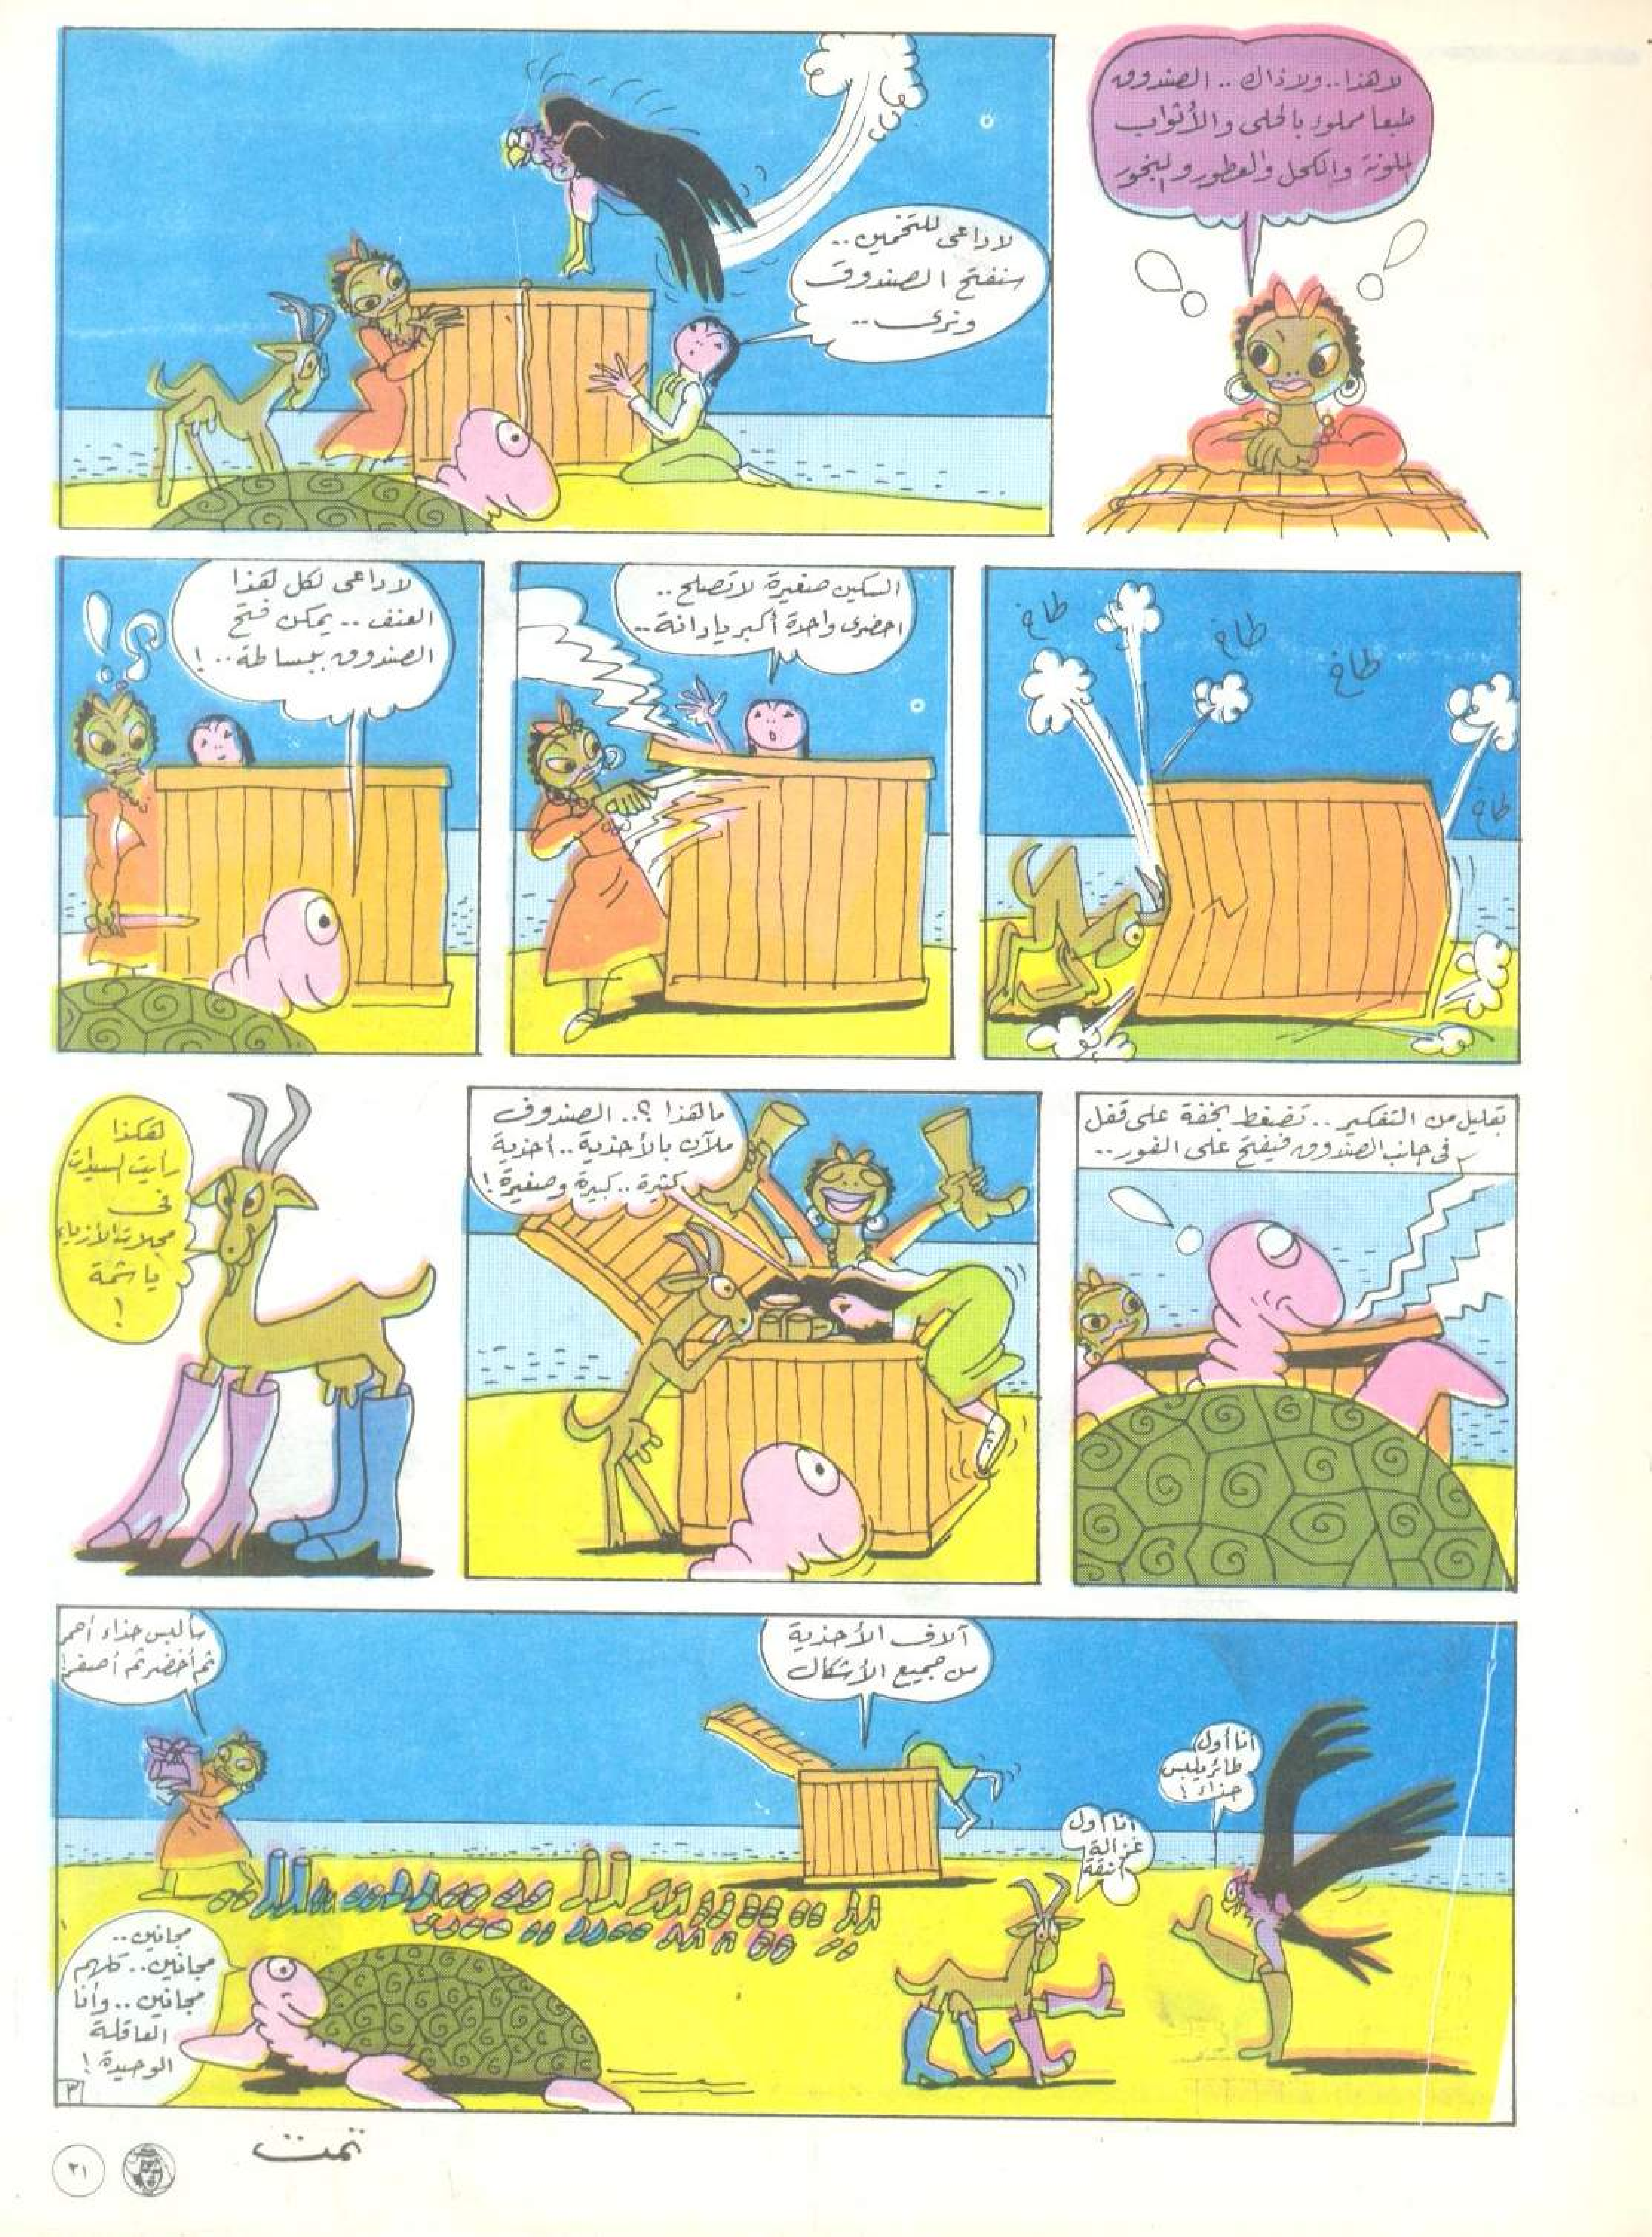 لا هذا.. ولا ذاك .. الصندوق
طبعا مملوء بالحلى والأثواب
الملونة والكحل والعطور والبخور
لا داعى للتخمين..
سنفتح الصندوق
ونرى..
طاخ
طاخ
طاخ
طاخ
السكين صغيرة لا تصلح..
احضرى واحدة أكبر يا دانة..
لا داعى لكل هذا
العنف .. يمكن فتح
الصندوق ببساطة..!
بقليل من التفكير.. تضغط بخفة على قفل
فى جانب الصندوق فيفتح على الفور..
ما هذا ؟.. الصندوق
ملآن بالأحذية .. أحذية
كثيرة.. كبيرة وصغيرة!
هكذا
رأيت السيدات
فى
مجلات الأزياء
يا شمة
!
أنا أول
طائر يلبس
حذاء!
أنا أول
غزالة
أنيقة
آلاف الأحذية
من جميع الأشكال
سألبس حذاء أحمر
ثم أخضر ثم أصفر!
مجانين..
مجانين.. كلهم
مجانين.. وأنا
العاقلة
الوحيدة!
٣
تمت
٢١